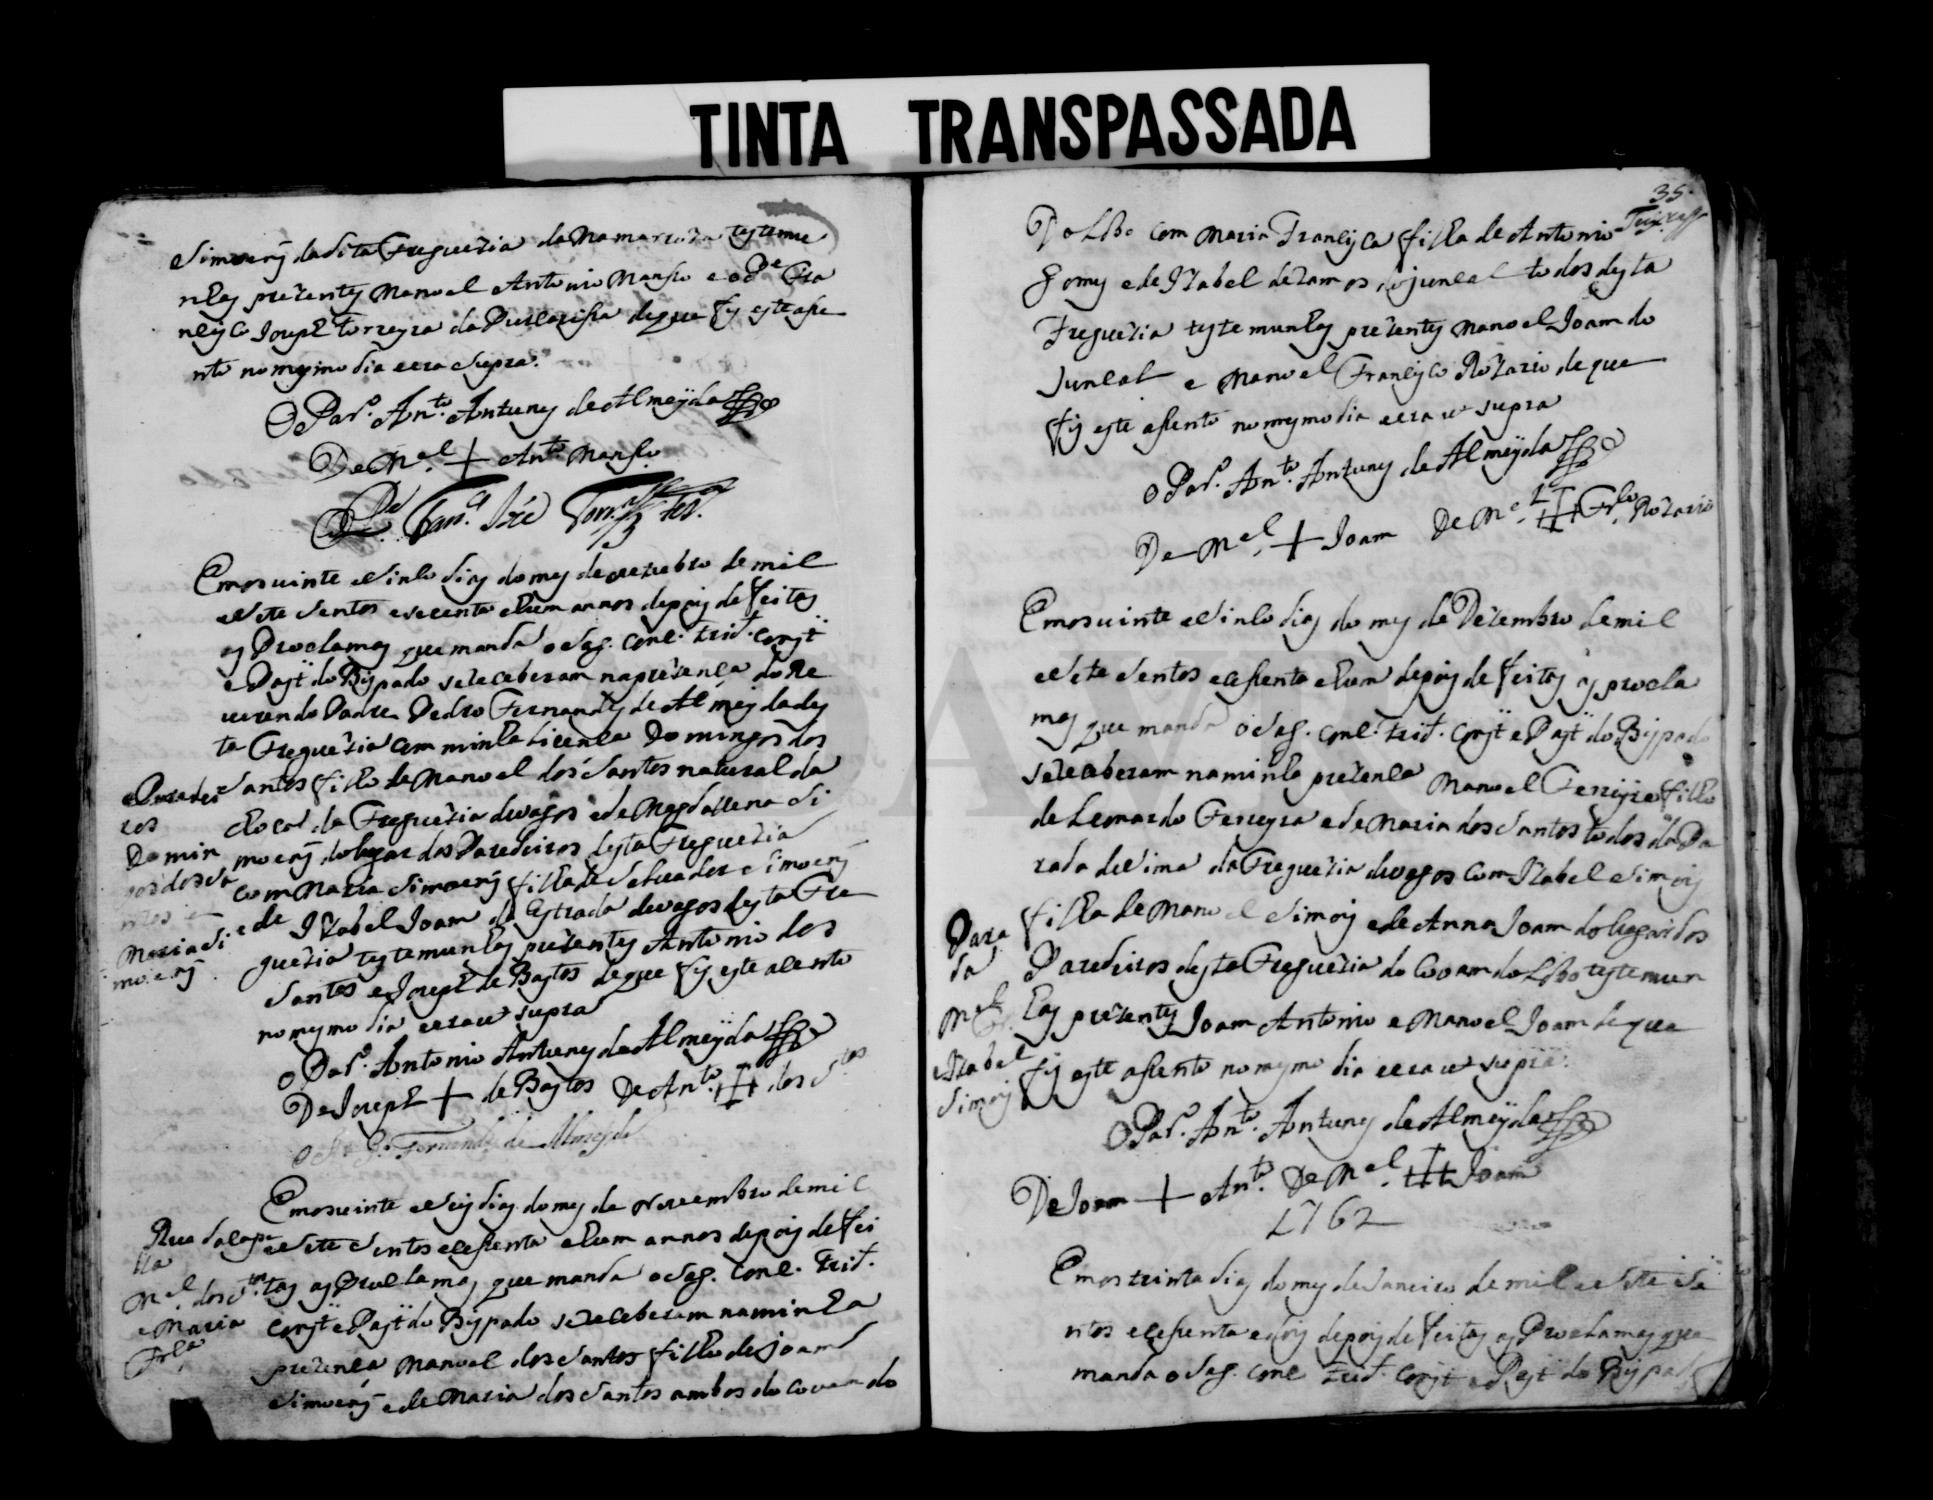 TINTA TRANSPASSADA
Simoens da dita Freguezia da Mamarroza testemu
nhas prezentes Manoel Antonio Manso e o Pe Fra
ncisco Joseph Torreyra da de que fis este asse
nto no mesmo dia e era supra.
O Par.º Ant.º Antunes de Almeyda
De Mel + Ant.º Manso
O Pe Fran.co Jozé
Emos vinte e sinco dias do mes de outubro de mil
e sete sentos e secenta e hum annos depois de feitas
as Proclamas que manda o Sag. Conc. Trid. Const.
e Past. do Bispado se receberam na prezença do Re
uerendo Padre Pedro Fernandes de Almeyda des
ta Freguezia com minha licença Domingos dos
Paredei
ros
Domin
gos dos Sa
ntos e
Maria Si
moens
Santos filho de Manoel dos Santos natural da
da Freguezia de vagos e de Magdallena Si
moens do lugar dos Paredeiros desta Freguezia
com Maria Simoens filha de Saluador Simoens
e de Izabel Joam da Estrada de vagos desta Fre
guezia testemunhas prezentes Antonio dos
Santos e Joseph de Bastos de que fis este acento
no mesmo dia e era ut supra
O Par.º Antonio Antunes de Almeyda
De Joseph + de Bastos De Ant.º + dos Stos
Fernandes de Almeyda
Emos vinte e seis dias do mes de Novembro demil
Rua da cape
lla
Mel. dos Stos
e Maria
Fr.ca
e sete sentos e sesenta e hum annos depois de fei
tas as Proclamas que manda o Sag. Conc. Trid.
Const. e Past. do Bispado se receberam na minha
prezença Manoel dos Santos filho de Joam
Simoens e de Maria dos Santos ambos do Covam do
35
Do Lobo com Maria Francisca filha de Antonio
Gomes e de Izabel de Ramos do juncal todos desta
Freguezia testemunhas prezentes Manoel Joam do
Juncal e Manoel Francisco Rozario de que
fis este asento no mesmo dia e era ut supra
O Par.º Ant.º Antunes de Almeyda
De Mel. + Joam De Mel. + Fr.co Rozario
Emos vinte e sinco dias do mes de Dezembro de mil
e sete sentos e sesenta e hum depois de feitas as procla
mas que manda o Sag. Conc. Trid. Const. e Past. do Bispado
se receberam na minha prezença Manoel Ferreira filho
de Leonardo Ferreyra e de Maria dos Santos todos da Pa
rada de Sima da Freguezia de vagos com Izabel Simois
Para
da
Mel.
Fr.
e Izabel
Simois
filha de Manoel Simois e de Anna Joam do lugar dos
Paredeiros desta Freguezia do Covam do Lobo testemun
has prezentes Joam Antonio e Manoel Joam de que
fis este asento no mesmo dia e era ut supra.
O Par.º Ant.º Antunes de Almeyda
De Joam + Ant.º De Mel. + Joam
1762
Emos trinta dias do mes de Janeiro de mil e sete se
ntos e sesenta e dois depois de feitas as Proclamas que
manda o Sag. Conc Trid. Const. e Past. do Bispado